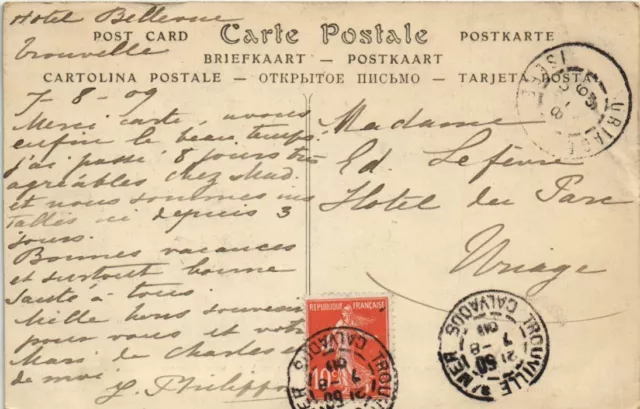 Hôtel Bellevue
Trouville
POST CARD Carte Postale POSTKARTE
BRIEFKAART — POSTKAART
CARTOLINA POSTALE — ОТКРЫТОЕ ПИСЬМО — TARJETA POSTAL
7-8-09
Merci carte, avons
enfin le beau temps,
j'ai passé 8 jours très
agréables chez Mad.
et nous sommes ins
tallés ici depuis 3
jours.
Bonnes vacances
et surtout bonne
santé à tous.
Mille bons souvenirs
pour vous et votre
Mari de Charles et
de moi.
J. Philippe
Madame
Ed. Lefèvre
Hotel du Parc
Uriage
URIAGE
ISERE
REPUBLIQUE FRANÇAISE
10c
TROUVILLE S/ MER
CALVADOS
21 50
7 -8
09
TROUVILLE S/ MER
CALVADOS
21 50
7 -8
09